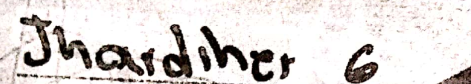 Jhardiher 6